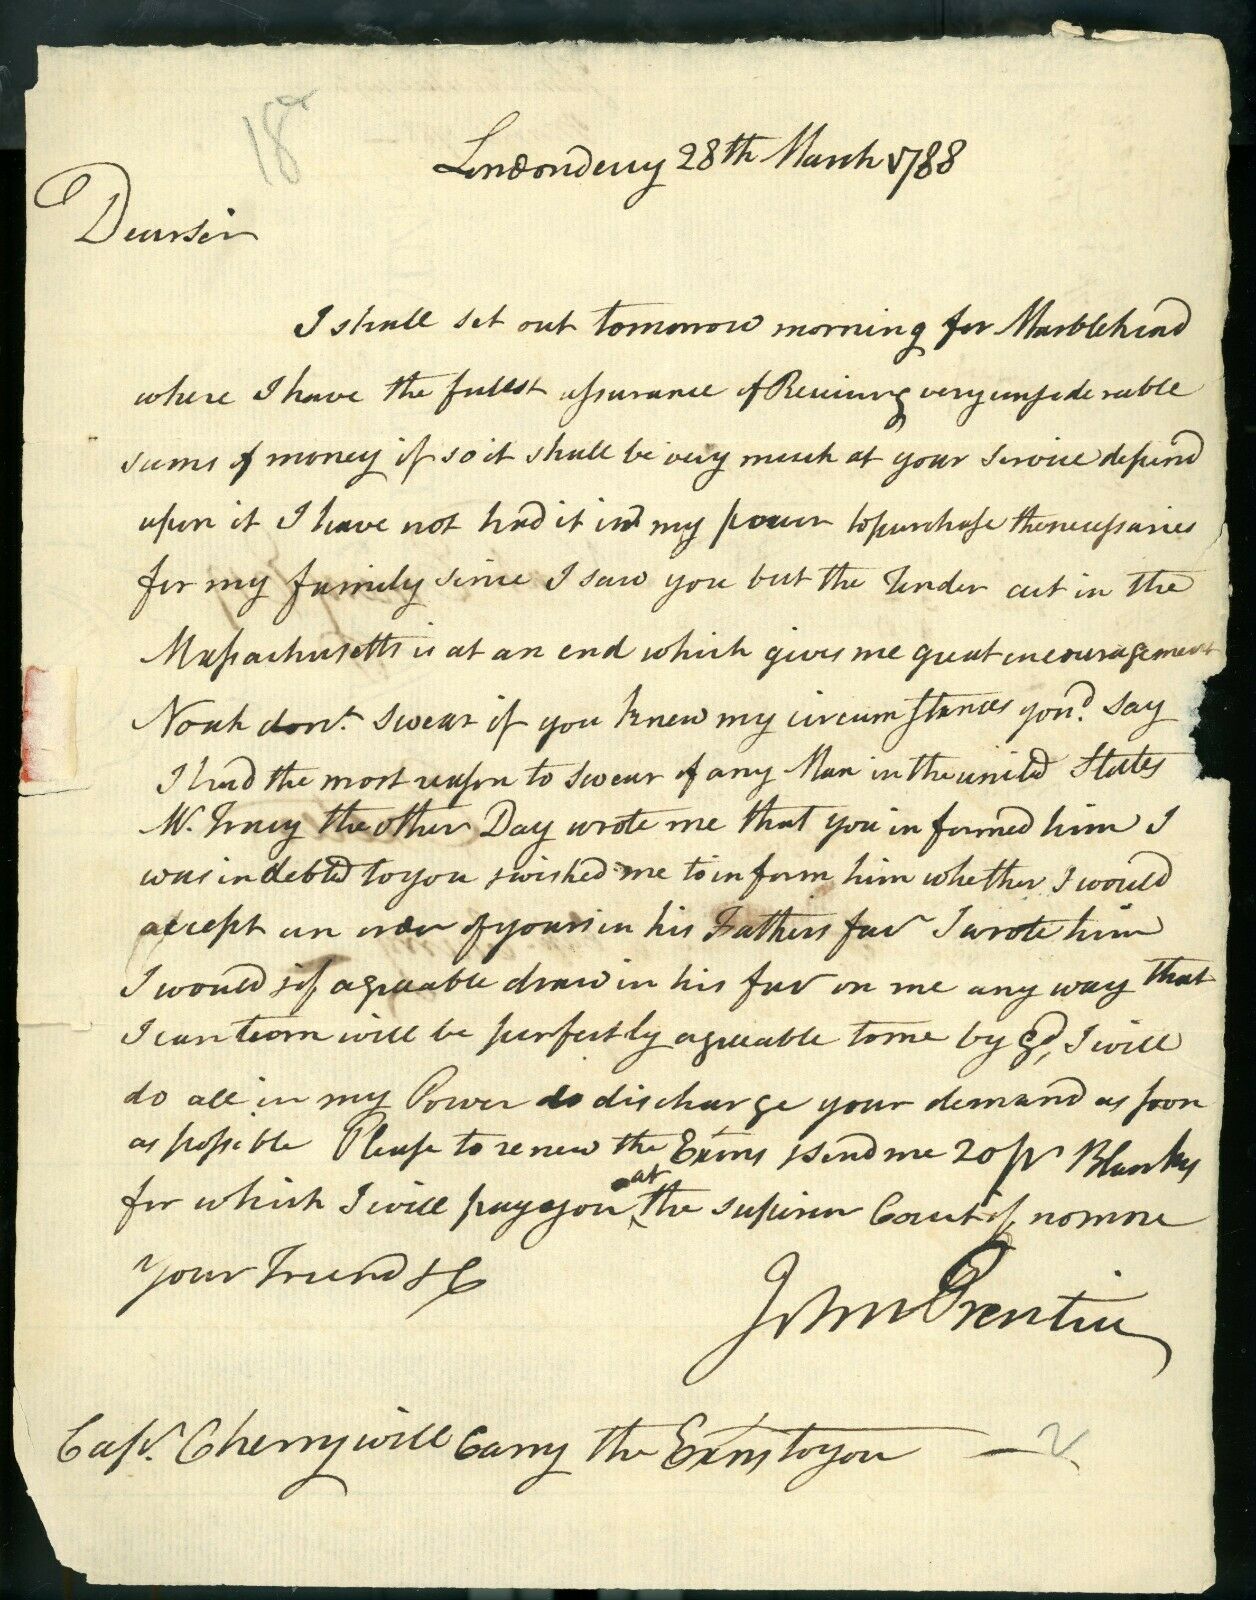 18
Londonderry 28th March 1788
Dear Sir
I shall set out tomorrow morning for Marblehead
where I have the fullest assurance of Receiving very considerable
sums of money if so it shall be very much at your service depend
upon it I have not had it in my power to purchase the necessaries
for my family since I saw you but the Tender act in the
Massachusetts is at an end which gives me great encouragement
Noah don't swear if you knew my circumstances you'd say
I had the most reason to swear of any Man in the united States
Mr. Tracy the other Day wrote me that you informed him I
was indebted to you & wished me to inform him whether I would
accept an order of yours in his Fathers favr I wrote him
I would & if agreeable draw in his favr on me any way that
I can turn will be perfectly agreeable to me by Gd, I will
do all in my Power to discharge your demand as soon
as possible Please to renew the Exons & send me 20 pr Blanks
for which I will pay you at the superior Court if no more
your Friend &c
John Prentice
Capt. Cherry will Carry the Exons to you